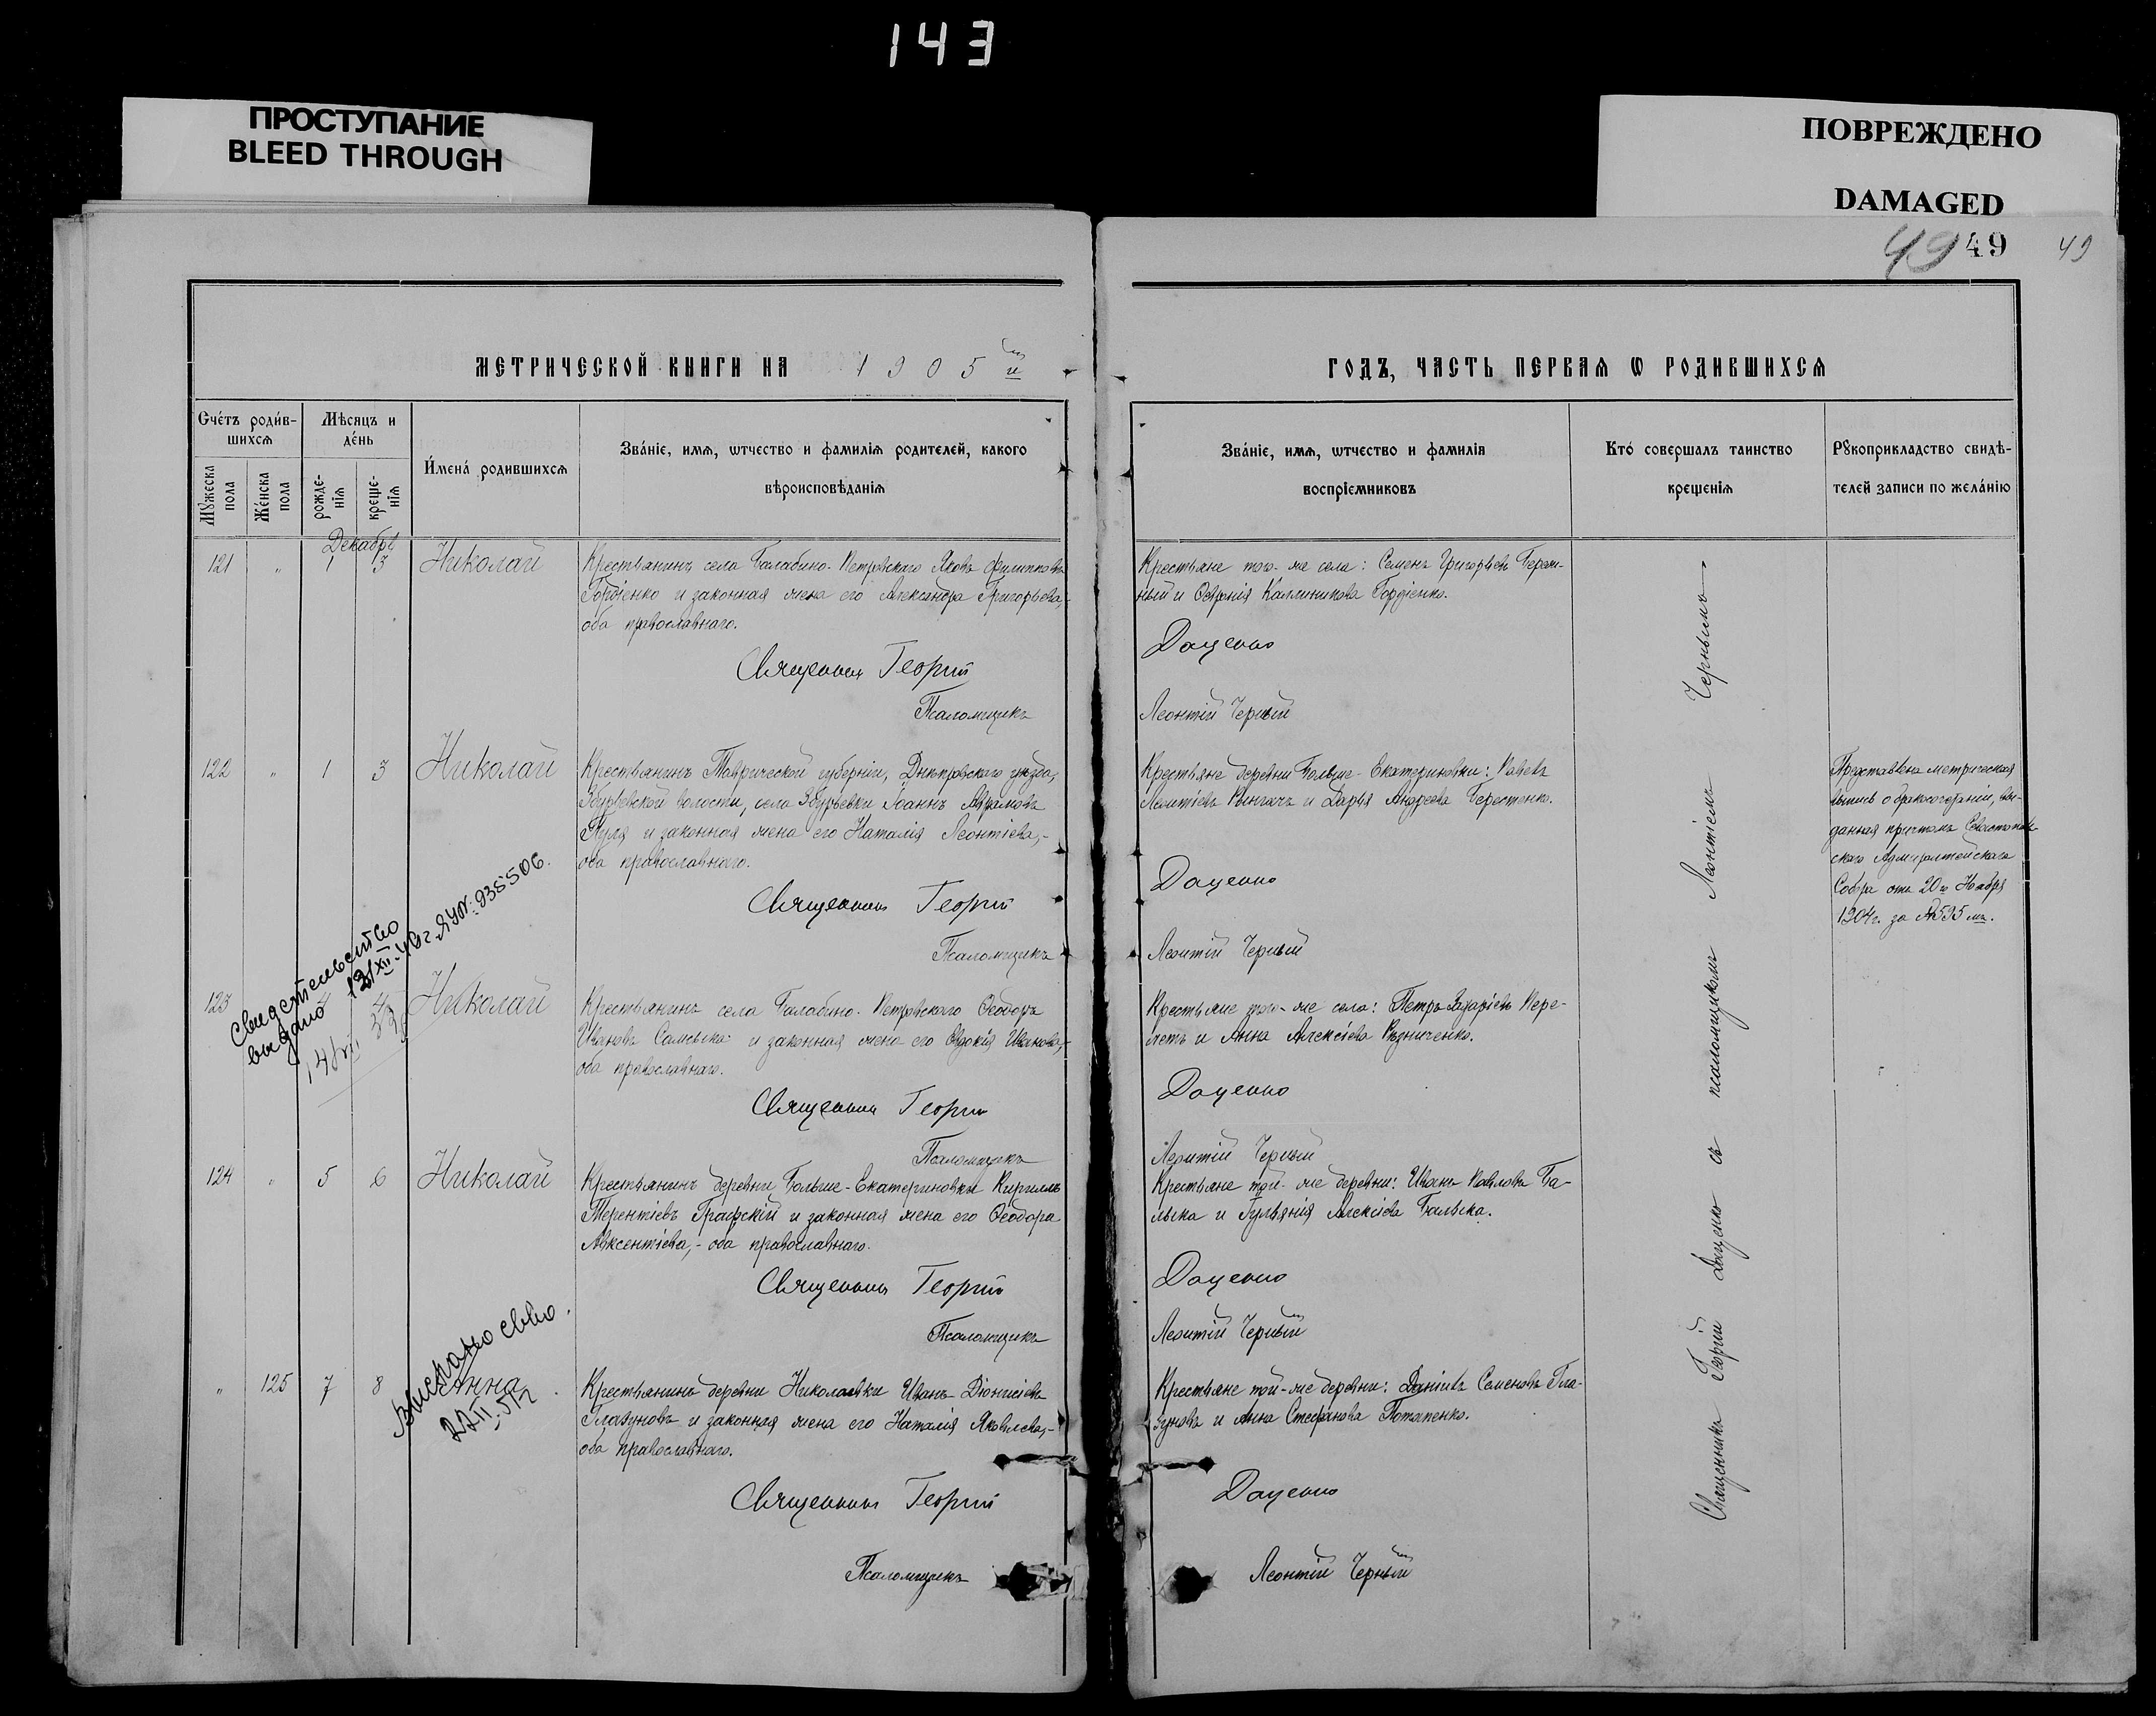 143
ПРОСТУПАНИЕ
BLEED THROUGH
ПОВРЕЖДЕНО
DAMAGED
49 49 49
МЕТРИЧЕСКОЙ КНИГИ НА 1905 й
ГОДЪ, ЧАСТЬ ПЕРВАѦ Ѡ РОДИВШИХСѦ
Счéтъ роди́в-
шихсѧ
Мꙋ́жеска пола
Жéнска пола
Мѣ́сяцъ и
дéнь
рожде-
нїѧ
креще-
нїѧ
И́мена́ родившихсѧ
Зва́нїе, имѧ, ѡтчество и фамилїѧ родителей, какого
вѣроисповѣданїѧ
Зва́нїе, имѧ, ѡтчество и фамилїѧ
воспрїемниковъ
Кто́ совершалъ таинство
крещенїѧ
Рꙋкоприкладство свидѣ-
телей записи по жела́нїю
Декабрь
121 " 1 3 Николай
Крестьянинъ села Балабино-Петровскаго Яковъ Филипповъ
Гордіенко и законная жена его Александра Григорьева,-
оба православнаго.
Священникъ Георгій
Псаломщикъ
Крестьяне того-же села: Семенъ Григорьевъ Береж-
ный и Ѳевронія Каллиникова Гордіенко.
Доценко
Леонтій Черный
122 " 1 3 Николай
Крестьянинъ Таврической губерніи, Днѣпровскаго уѣзда,
Збурьевской волости, села Збурьевки Іоаннъ Аврамовъ
Пуля и законная жена его Наталія Леонтіева,-
оба православнаго.
Священникъ Георгій
Псаломщикъ
Крестьяне деревни Больше-Екатериновки: Павелъ
Леонтіевъ и Дарья Андреева Берестенко.
Доценко
Леонтій Черный
Представлена метрическая
выпись о бракосочетаніи, вы-
данная причтомъ Севастополь-
скаго Адмиралтейскаго
Собора отъ 20го Ноября
1904 г. за № 595 мъ.
Свидетельство
выдано
ЯЧ №: 935506.
123 4 Николай
Крестьянинъ села Балабино-Петровскаго Ѳеодоръ
Ивановъ и законная жена его Евдокія Иванова,-
оба православнаго.
Священникъ Георгій
Псаломщикъ
Крестьяне того-же села: Петръ Захаріевъ Пере-
и Анна Алексіева Рѣзниченко.
Доценко
Леонтій Черный
124 " 5 6 Николай
Крестьянинъ деревни Больше-Екатериновки Кириллъ
Терентіевъ Графскій и законная жена его Ѳеодора
Авксентіева,- оба православнаго.
Священникъ Георгій
Псаломщикъ
Крестьяне той-же деревни: Иванъ Павловъ Ба-
лыка и Гульянія Алексіева Балыка.
Доценко
Леонтій Черный
Выслано св-во.
" 125 7 8 Анна
Крестьянинъ деревни Николаевки Иванъ Діонисіевъ
Глазуновъ и законная жена его Наталія Яковлева,-
оба православнаго.
Священникъ Георгій
Псаломщикъ
Крестьяне той-же деревни: Даніилъ Семеновъ Гла-
зуновъ и Анна Стефанова Потапенко.
Доценко
Леонтій Черный
Священникъ Георгій Доценко съ псаломщикомъ Леонтіемъ Чернымъ